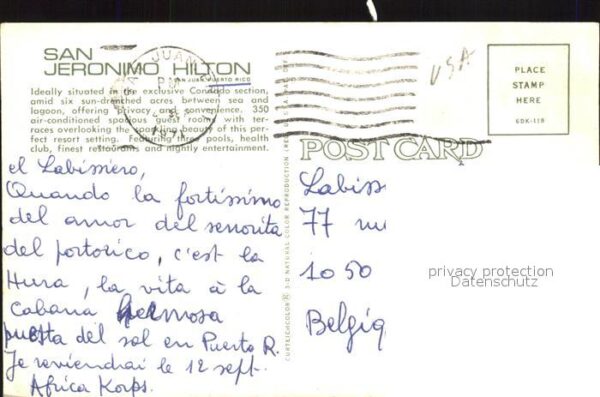 SAN
JERONIMO HILTON
SAN JUAN, PUERTO RICO
Ideally situated in the exclusive Condado section,
amid six sun-drenched acres between sea and
lagoon, offering privacy and convenience. 350
air-conditioned spacious guest rooms with ter-
races overlooking the sparkling beauty of this per-
fect resort setting. Featuring the pools, health
club, finest restaurants and nightly entertainment.
SAN JUAN
PM
USA
PLACE
STAMP
HERE
6DK-118
POST CARD
CURTEICHCOLOR® 3-D NATURAL COLOR REPRODUCTION
el Labissiero,
Quando la fortissimo
del amor del senorita
del portorico, c'est la
Hura, la vita à la
cabana hermosa
puesta del sol en Puerto R.
Je reviendrai le 12 sept.
Africa Korps.
Labiss
77 ru
1050
Belgiq
privacy protection
Datenschutz